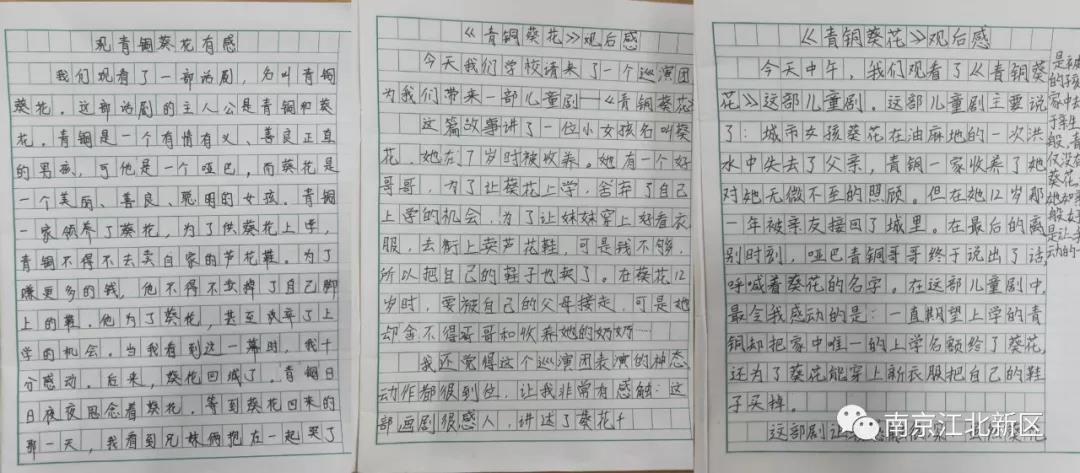 观青铜葵花有感
我们观看了一部话剧，名叫青铜
葵花。这部话剧的主人公是青铜和葵
花。青铜是一个有情有义、善良正直
的男孩，可他是一个哑巴，而葵花是
一个美丽、善良、聪明的女孩。青铜
一家领养了葵花，为了供葵花上学，
青铜不得不去卖自家的芦花鞋。为了
赚更多的钱，他不得不卖掉了自己脚
上的鞋。他为了葵花，甚至放弃了上
学的机会。当我看到这一幕时，我十
分感动。后来，葵花回城了。青铜日
日夜夜思念着葵花。等到葵花回来的
那一天，我看到兄妹俩抱在一起哭了
《青铜葵花》观后感
今天我们学校请来了一个巡演团
为我们带来一部儿童剧—《青铜葵花》
这篇故事讲了一位小女孩名叫葵
花，她在7岁时被收养。她有一个好
哥哥，为了让葵花上学，舍弃了自己
上学的机会，为了让妹妹穿上好看衣
服，去街上卖芦花鞋，可是钱不够，
所以把自己的鞋子也卖了。在葵花12
岁时，要被自己的父母接走，可是她
却舍不得哥哥和收养她的奶奶…
我还觉得这个巡演团表演的神态
动作都很到位，让我非常有感触：这
部画剧很感人，讲述了葵花
《青铜葵花》观后感
今天中午，我们观看了《青铜葵
花》这部儿童剧。这部儿童剧主要说
了：城市女孩葵花在油麻地的一次洪
水中失去了父亲，青铜一家收养了她
对她无微不至的照顾。但在她12岁那
一年被亲友接回了城里。在最后的离
别时刻，哑巴青铜哥哥终于说出了话
呼喊着葵花的名字。在这部儿童剧中
最令我感动的是：一直期望上学的青
铜却把家中唯一的上学名额给了葵花，
还为了葵花能穿上新衣服把自己的鞋
子买掉。
这部剧让
南京江北新区